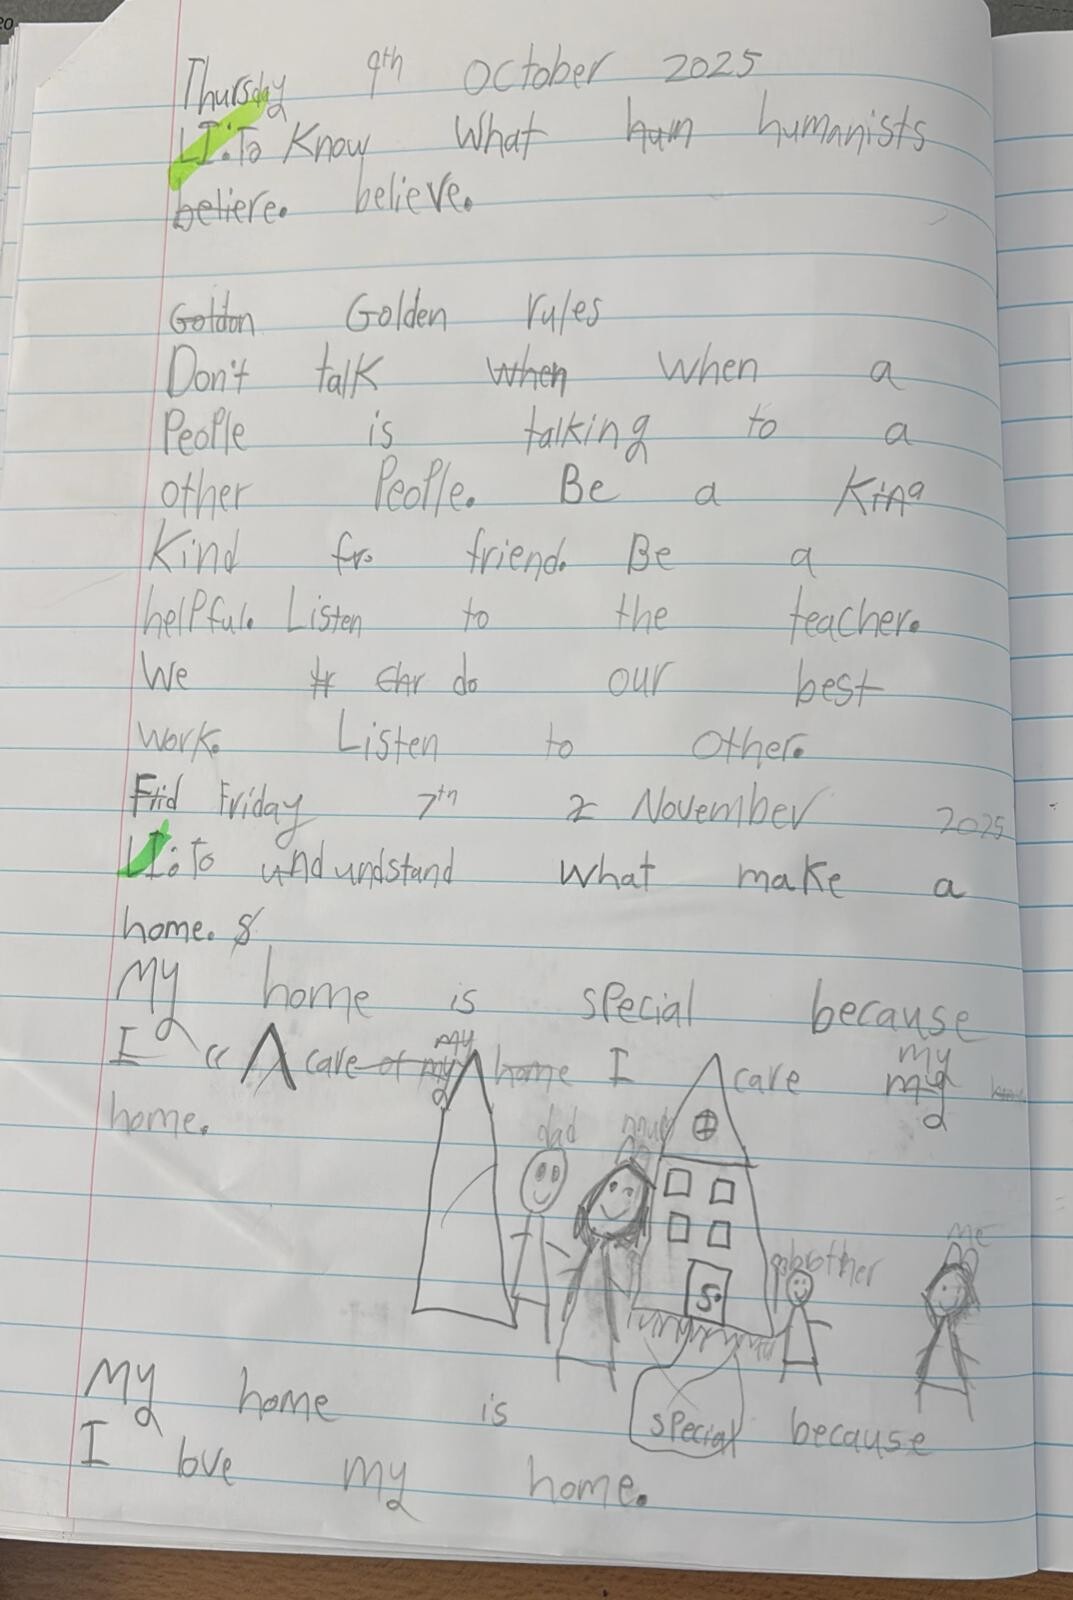 Thursday 9th October 2025
LI: To Know What hum humanists
beliere. believe.
Goldon Golden rules
Don't talk when when a
People is talking to a
other People. Be a King
Kind fr. friend. Be a
helpful. Listen to the teacher.
We do our best
work. Listen to other.
Frid Friday 7th November 2025
LI: To und undstand what make a
home.
My home is special because
I care of my my home I care my my
home.
dad mum
brother me
My home is special because
I love my home.